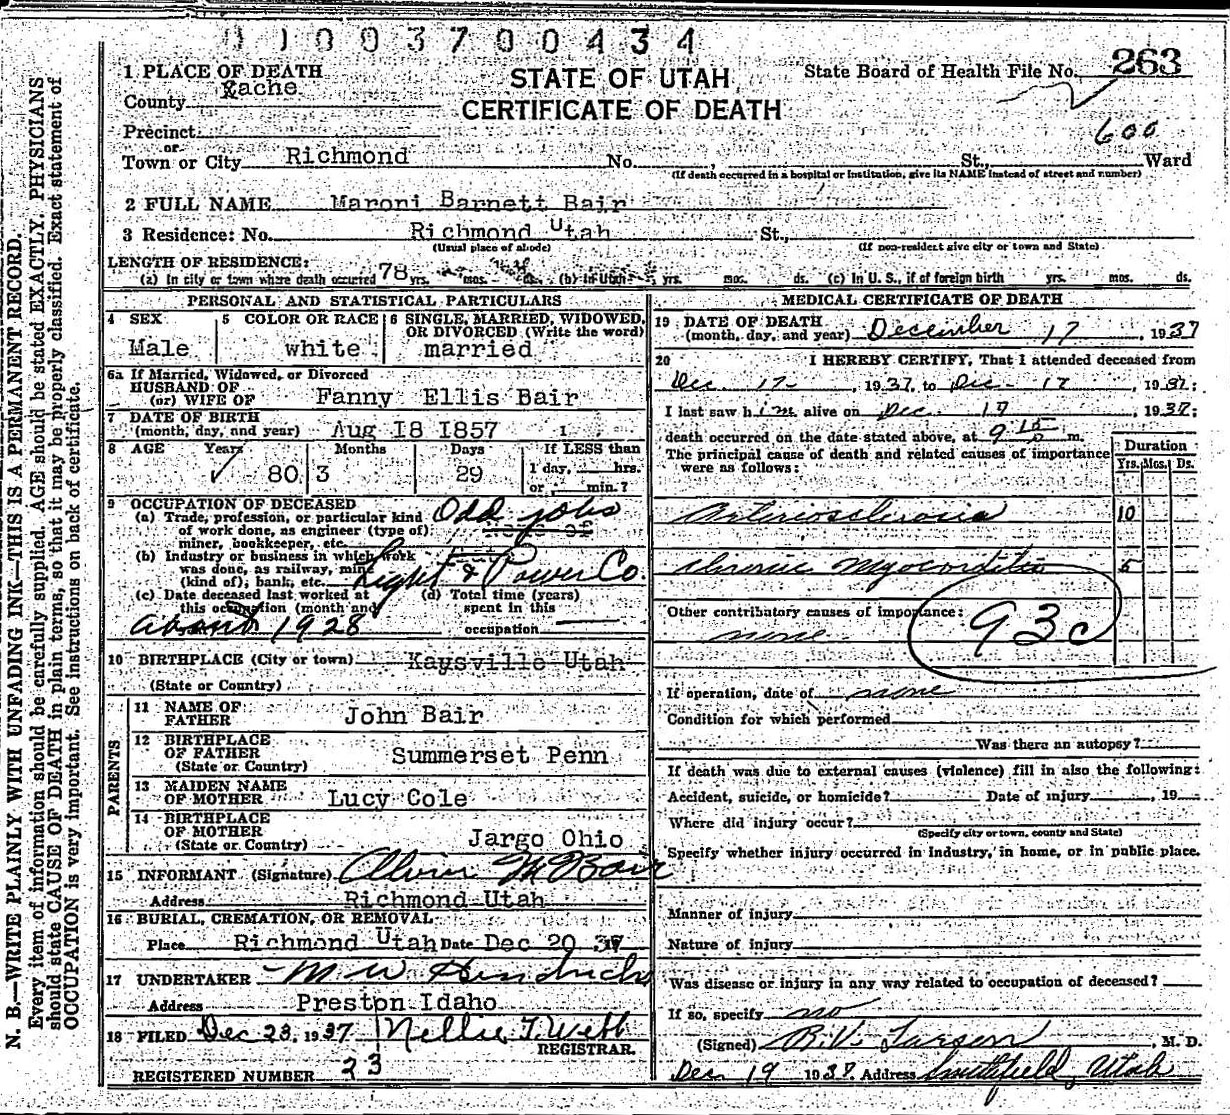 N. B.—WRITE PLAINLY WITH UNFADING INK—THIS IS A PERMANENT RECORD.
Every item of information should be carefully supplied. AGE should be stated EXACTLY. PHYSICIANS
should state CAUSE OF DEATH in plain terms, so that it may be properly classified. Exact statement of
OCCUPATION is very important. See instructions on back of certificate.
0 1 0 0 3 7 0 0 4 3 4
STATE OF UTAH
CERTIFICATE OF DEATH
State Board of Health File No. 263
600
1 PLACE OF DEATH
County Cache
Precinct
or
Town or City Richmond No. , St., Ward
(If death occurred in a hospital or institution, give its NAME instead of street and number)
2 FULL NAME Maroni Barnett Bair
3 Residence: No. Richmond Utah St.,
(Usual place of abode) (If non-resident give city or town and State)
LENGTH OF RESIDENCE:
(a) In city or town where death occurred 78 yrs. mos. ds. (b) in Utah yrs. mos. ds. (c) In U. S., if of foreign birth yrs. mos. ds.
PERSONAL AND STATISTICAL PARTICULARS
4 SEX
Male
5 COLOR OR RACE
white
6 SINGLE, MARRIED, WIDOWED,
OR DIVORCED (Write the word)
married
6a If Married, Widowed, or Divorced
HUSBAND OF
(or) WIFE OF Fanny Ellis Bair
7 DATE OF BIRTH
(month, day, and year) Aug I8 I857
8 AGE Years Months Days If LESS than
80 3 29 1 day, hrs.
or min.?
9 OCCUPATION OF DECEASED
(a) Trade, profession, or particular kind
of work done, as engineer (type of)
miner, bookkeeper, etc. Odd jobs
(b) Industry or business in which work
was done, as railway, mine
(kind of), bank, etc. Light & Power Co
(c) Date deceased last worked at
this occupation (month and
about 1928
(d) Total time (years)
spent in this
occupation
10 BIRTHPLACE (City or town) Kaysville Utah
(State or Country)
PARENTS
11 NAME OF
FATHER John Bair
12 BIRTHPLACE
OF FATHER Summerset Penn
(State or Country)
13 MAIDEN NAME
OF MOTHER Lucy Cole
14 BIRTHPLACE
OF MOTHER
(State or Country) Jargo Ohio
15 INFORMANT (Signature) Oliver M Bair
Address Richmond Utah
16 BURIAL, CREMATION, OR REMOVAL
Place Richmond Utah Date Dec 20 37
17 UNDERTAKER M W Hendricks
Address Preston Idaho
18 FILED Dec 23, 1937 Nellie T. Webb
REGISTRAR.
REGISTERED NUMBER 23
MEDICAL CERTIFICATE OF DEATH
19 DATE OF DEATH
(month, day, and year) December 17, 1937
20 I HEREBY CERTIFY, That I attended deceased from
Dec. 17, 1937, to Dec. 17, 1937;
I last saw him alive on Dec. 17, 1937;
death occurred on the date stated above, at 9 15 p m.
The principal cause of death and related causes of importance
were as follows:
Duration
Yrs. Mos. Ds.
Arteriosclerosis 10
Chronic Myocarditis 5
Other contributary causes of importance:
none
93c
If operation, date of none
Condition for which performed
Was there an autopsy?
If death was due to external causes (violence) fill in also the following:
Accident, suicide, or homicide? Date of injury , 19
Where did injury occur?
(Specify city or town, county and State)
Specify whether injury occurred in industry, in home, or in public place.
Manner of injury
Nature of injury
Was disease or injury in any way related to occupation of deceased?
If so, specify no
(Signed) R.V. Larsen, M. D.
Dec. 19 1937. Address Smithfield, Utah